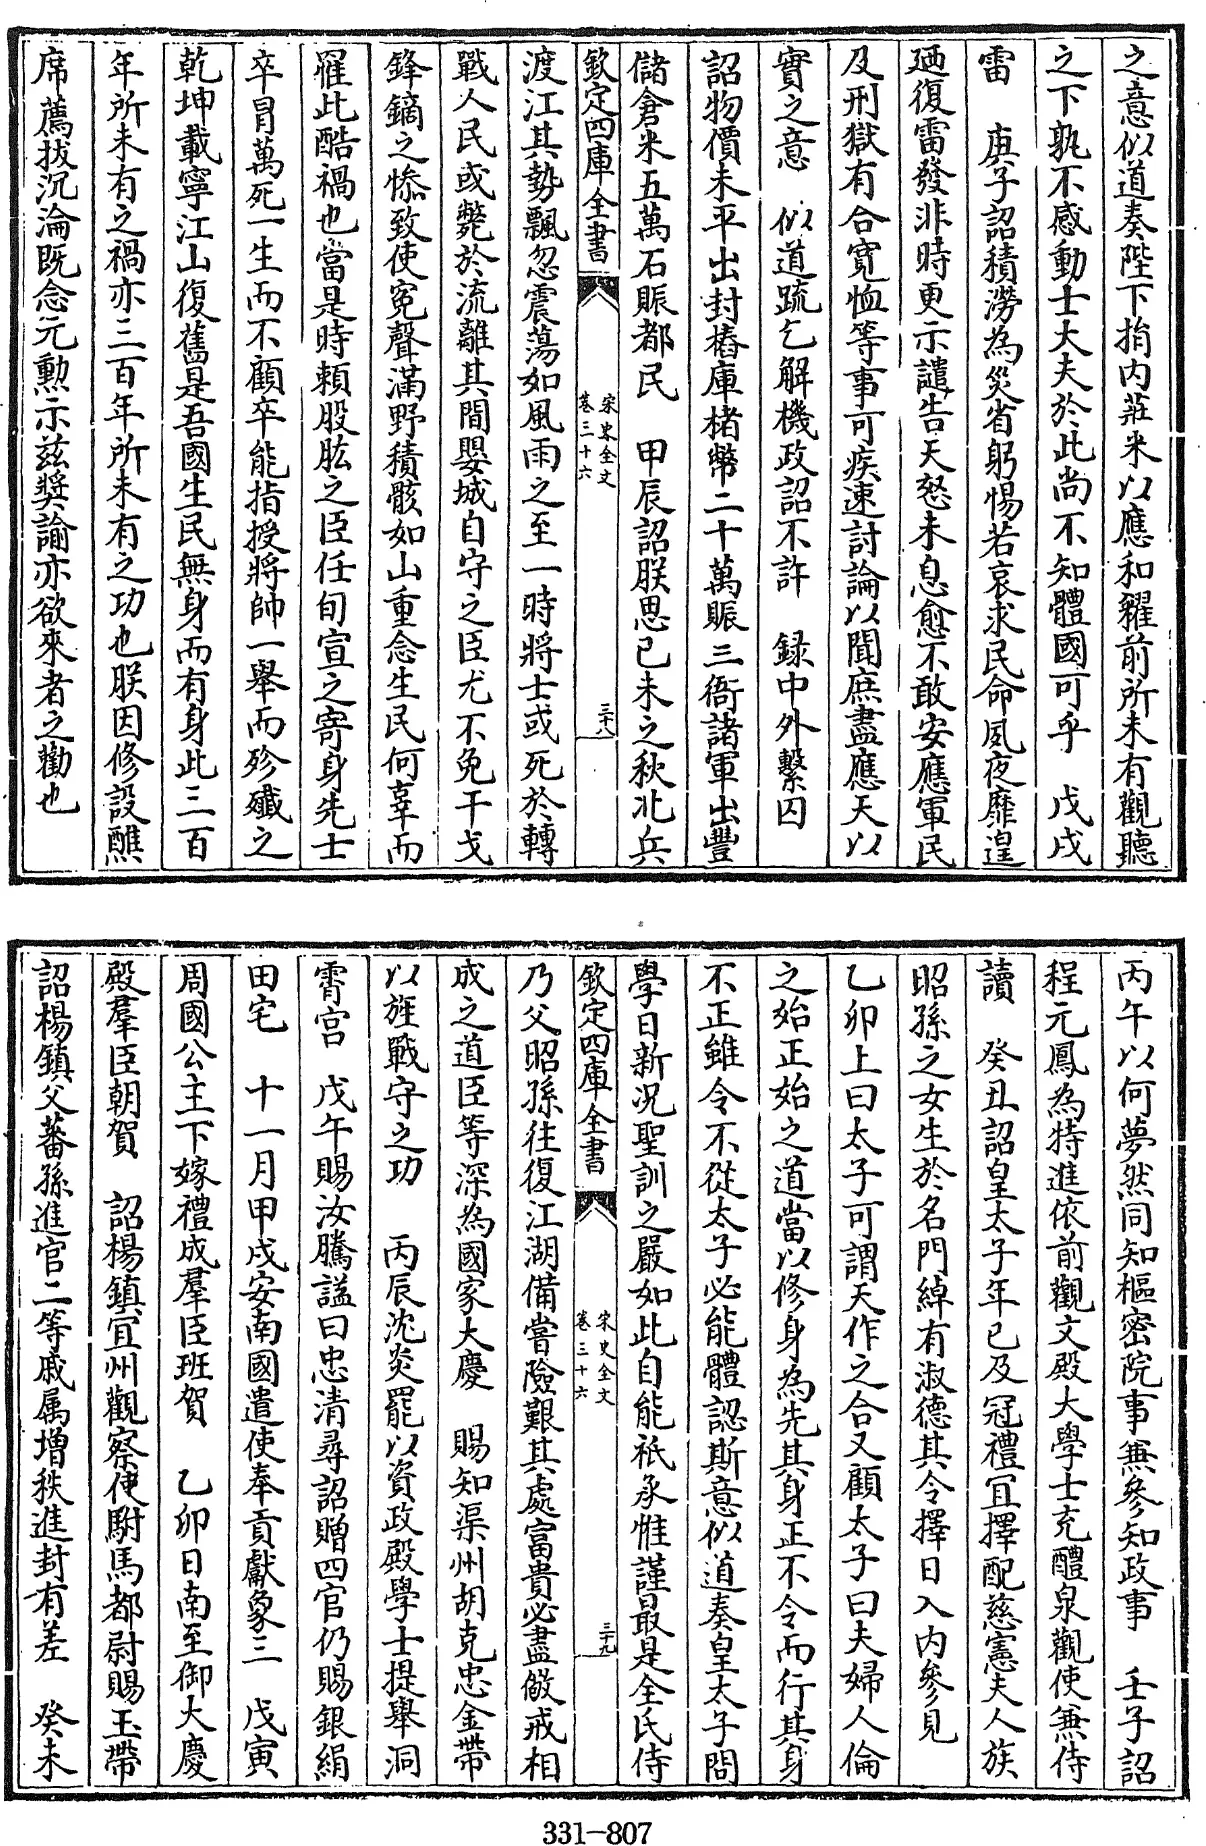 之意似道奏陛下捐内莊米以應和糴前所未有觀聽
之下孰不感動士大夫於此尚不知體國可乎　戊戌
雷　庚子詔積澇為災省躬惕若哀求民命夙夜靡遑
廼復雷發非時更示譴告天怒未息愈不敢安應軍民
及刑獄有合寛恤等事可疾速討論以聞庶盡應天以
實之意　似道疏乞解機政詔不許　録中外繫囚
詔物價未平出封樁庫楮幣二十萬賑三衙諸軍出豐
儲倉米五萬石賑都民　甲辰詔朕思已未之秋北兵
欽定四庫全書
宋史全文
卷三十六
三十八
渡江其勢飄忽震蕩如風雨之至一時將士或死於轉
戰人民或斃於流離其間嬰城自守之臣尤不免干戈
鋒鏑之慘致使寃聲滿野積骸如山重念生民何辜而
罹此酷禍也當是時頼股肱之臣任旬宣之寄身先士
卒冒萬死一生而不顧卒能指授將帥一舉而殄殲之
乾坤載寧江山復舊是吾國生民無身而有身此三百
年所未有之禍亦三百年所未有之功也朕因修設醮
席薦拔沉淪既念元勲示兹奬諭亦欲來者之勸也
丙午以何夢然同知樞密院事兼參知政事　壬子詔
程元鳳為特進依前觀文殿大學士充醴泉觀使兼侍
讀　癸丑詔皇太子年已及冠禮宜擇配慈憲夫人族
昭孫之女生於名門綽有淑德其令擇日入内參見
乙卯上曰太子可謂天作之合又顧太子曰夫婦人倫
之始正始之道當以修身為先其身正不令而行其身
不正雖令不從太子必能體認斯意似道奏皇太子問
學日新況聖訓之嚴如此自能祇承惟謹最是全氏侍
欽定四庫全書
宋史全文
卷三十六
三十九
乃父昭孫往復江湖備嘗險艱其處富貴必盡儆戒相
成之道臣等深為國家大慶　賜知渠州胡克忠金帶
以旌戰守之功　丙辰沈炎罷以資政殿學士提舉洞
霄宫　戊午賜汝騰謚曰忠清尋詔贈四官仍賜銀絹
田宅　十一月甲戌安南國遣使奉貢獻象三　戊寅
周國公主下嫁禮成羣臣班賀　乙卯日南至御大慶
殿羣臣朝賀　詔楊鎮宜州觀察使駙馬都尉賜玉帶
詔楊鎮父蕃孫進官二等戚属增秩進封有差　癸未
331-807